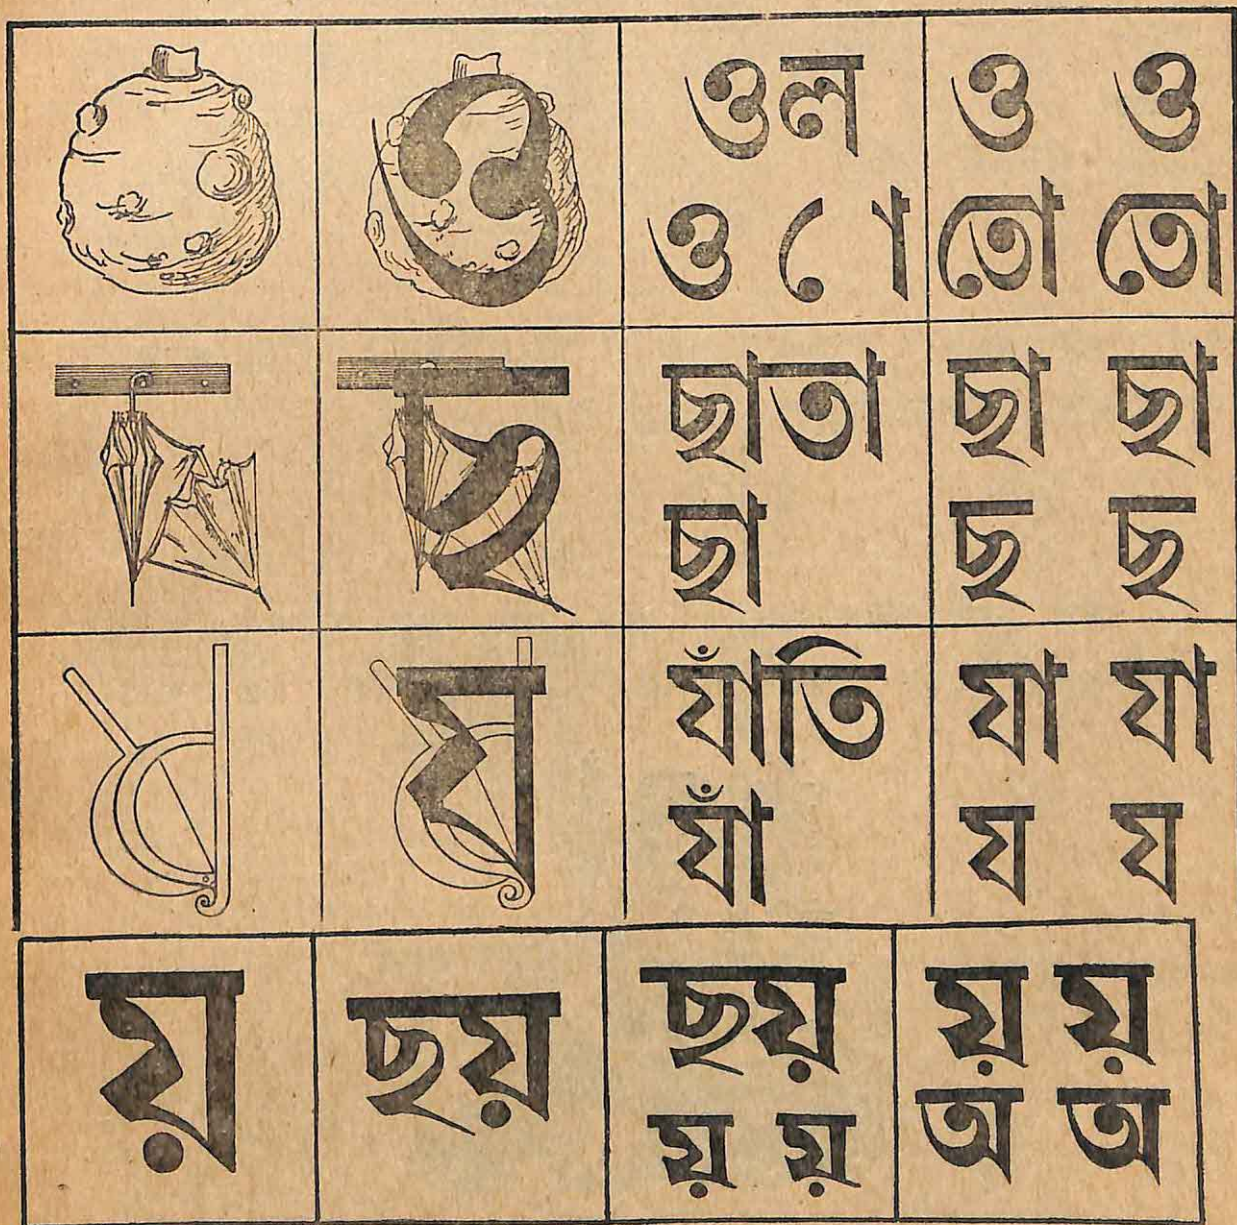 ও
ওল
ও ো
ও ও
তো তো
ছ
ছাতা
ছা
ছা ছা
ছ ছ
য
যাঁতি
যাঁ
যা যা
য য
য়
ছয়
ছয়
য় য়
য় য়
অ অ